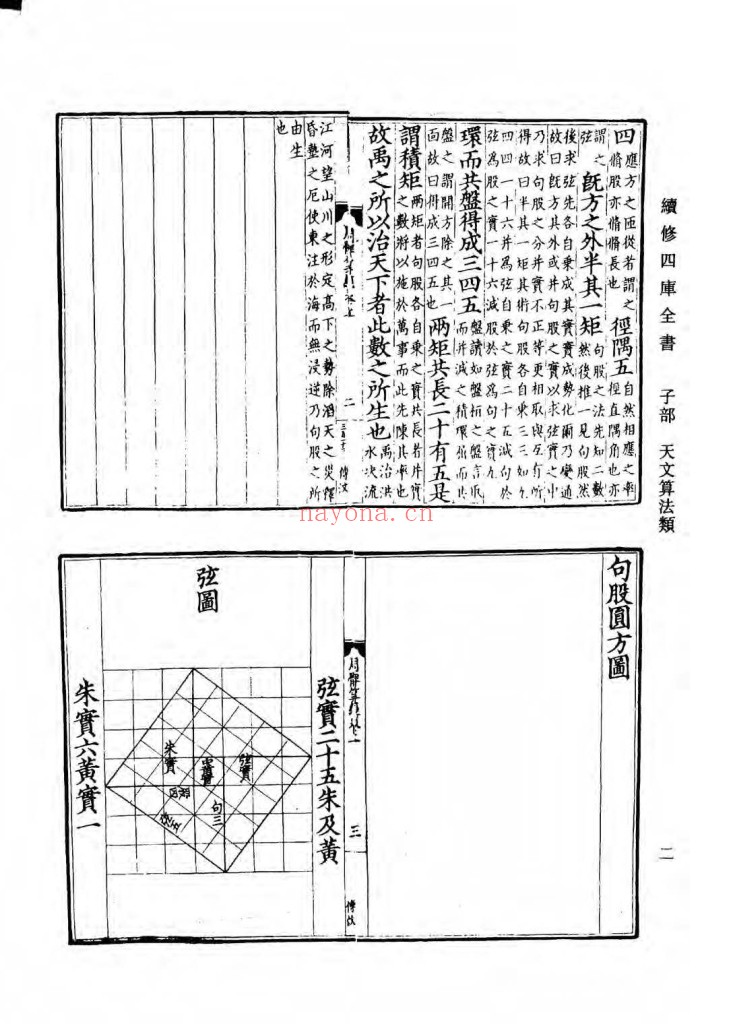 續修四庫全書　子部　天文算法類
二
四
應方之匝從者謂之
脩股亦脩脩長也
徑隅五
自然相應之率
徑直隅角也亦
謂之
弦
既方之外半其一矩
句股之法先知二數
然後推一見句股然
後求弦先各自乘成其實實成勢化爾乃變通
故曰既方其外或并句股之實以求弦實之中
乃求句股之分并實不正等更相取與互有所
得故曰半其一矩其術句股各自乘三三如九
四四一十六并為弦自乘之實二十五減句於
弦為股之實一十六減股於弦為句之實九
環而共盤得成三四五
盤讀如盤桓之盤言取
而并減之積環屈而共
盤之謂開方除之其一
面故曰得成三四五也
兩矩共長二十有五是
謂積矩
兩矩者句股各自乘之實共長者并實
之數將以施於萬事而此先陳其率也
故禹之所以治天下者此數之所生也
禹治洪
水決流
二
江河望山川之形定高下之勢除滔天之災釋
昏墊之厄使東注於海而無浸逆乃句股之所
由生
也
nayona.cn
句股圓方圖
三
弦實二十五朱及黃
弦圖
弦實
中黃實
朱實
句三
股四
弦五
朱實六黃實一